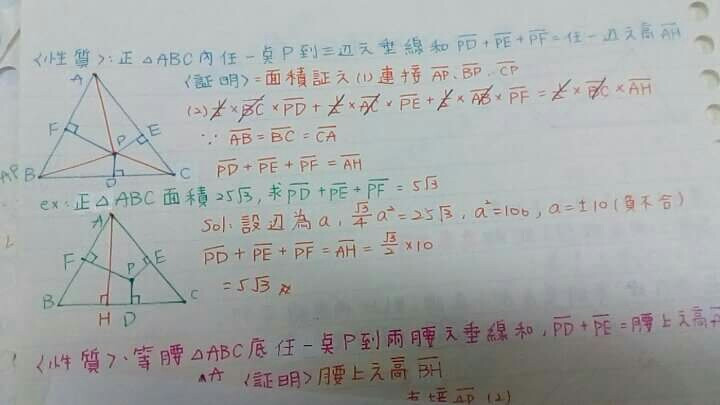 <性質>:正△ABC內任一點P到三边之垂線和PD+PE+PF=任一边之高AH
<証明>=面積証之(1)連接 AP、BP、CP
(2)½×BC×PD+½×AC×PE+½×AB×PF=½×BC×AH
∵ AB=BC=CA
PD+PE+PF=AH
A
F
P
E
B
D
C
AP
ex:正△ABC面積25√3,求PD+PE+PF=5√3
Sol:設边為a,√3/4 a²=25√3,a²=100,a=±10(負不合)
PD+PE+PF=AH=√3/2×10
=5√3
A
F
P
E
B
H
D
C
<性質>:等腰△ABC底任一點P到兩腰之垂線和,PD+PE=腰上之高
A
<証明>腰上之高BH
AP (2)